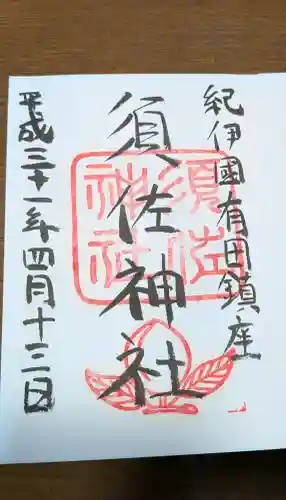 紀伊國有田鎮座
須佐神社
須佐
神社
平成三十一年四月十三日